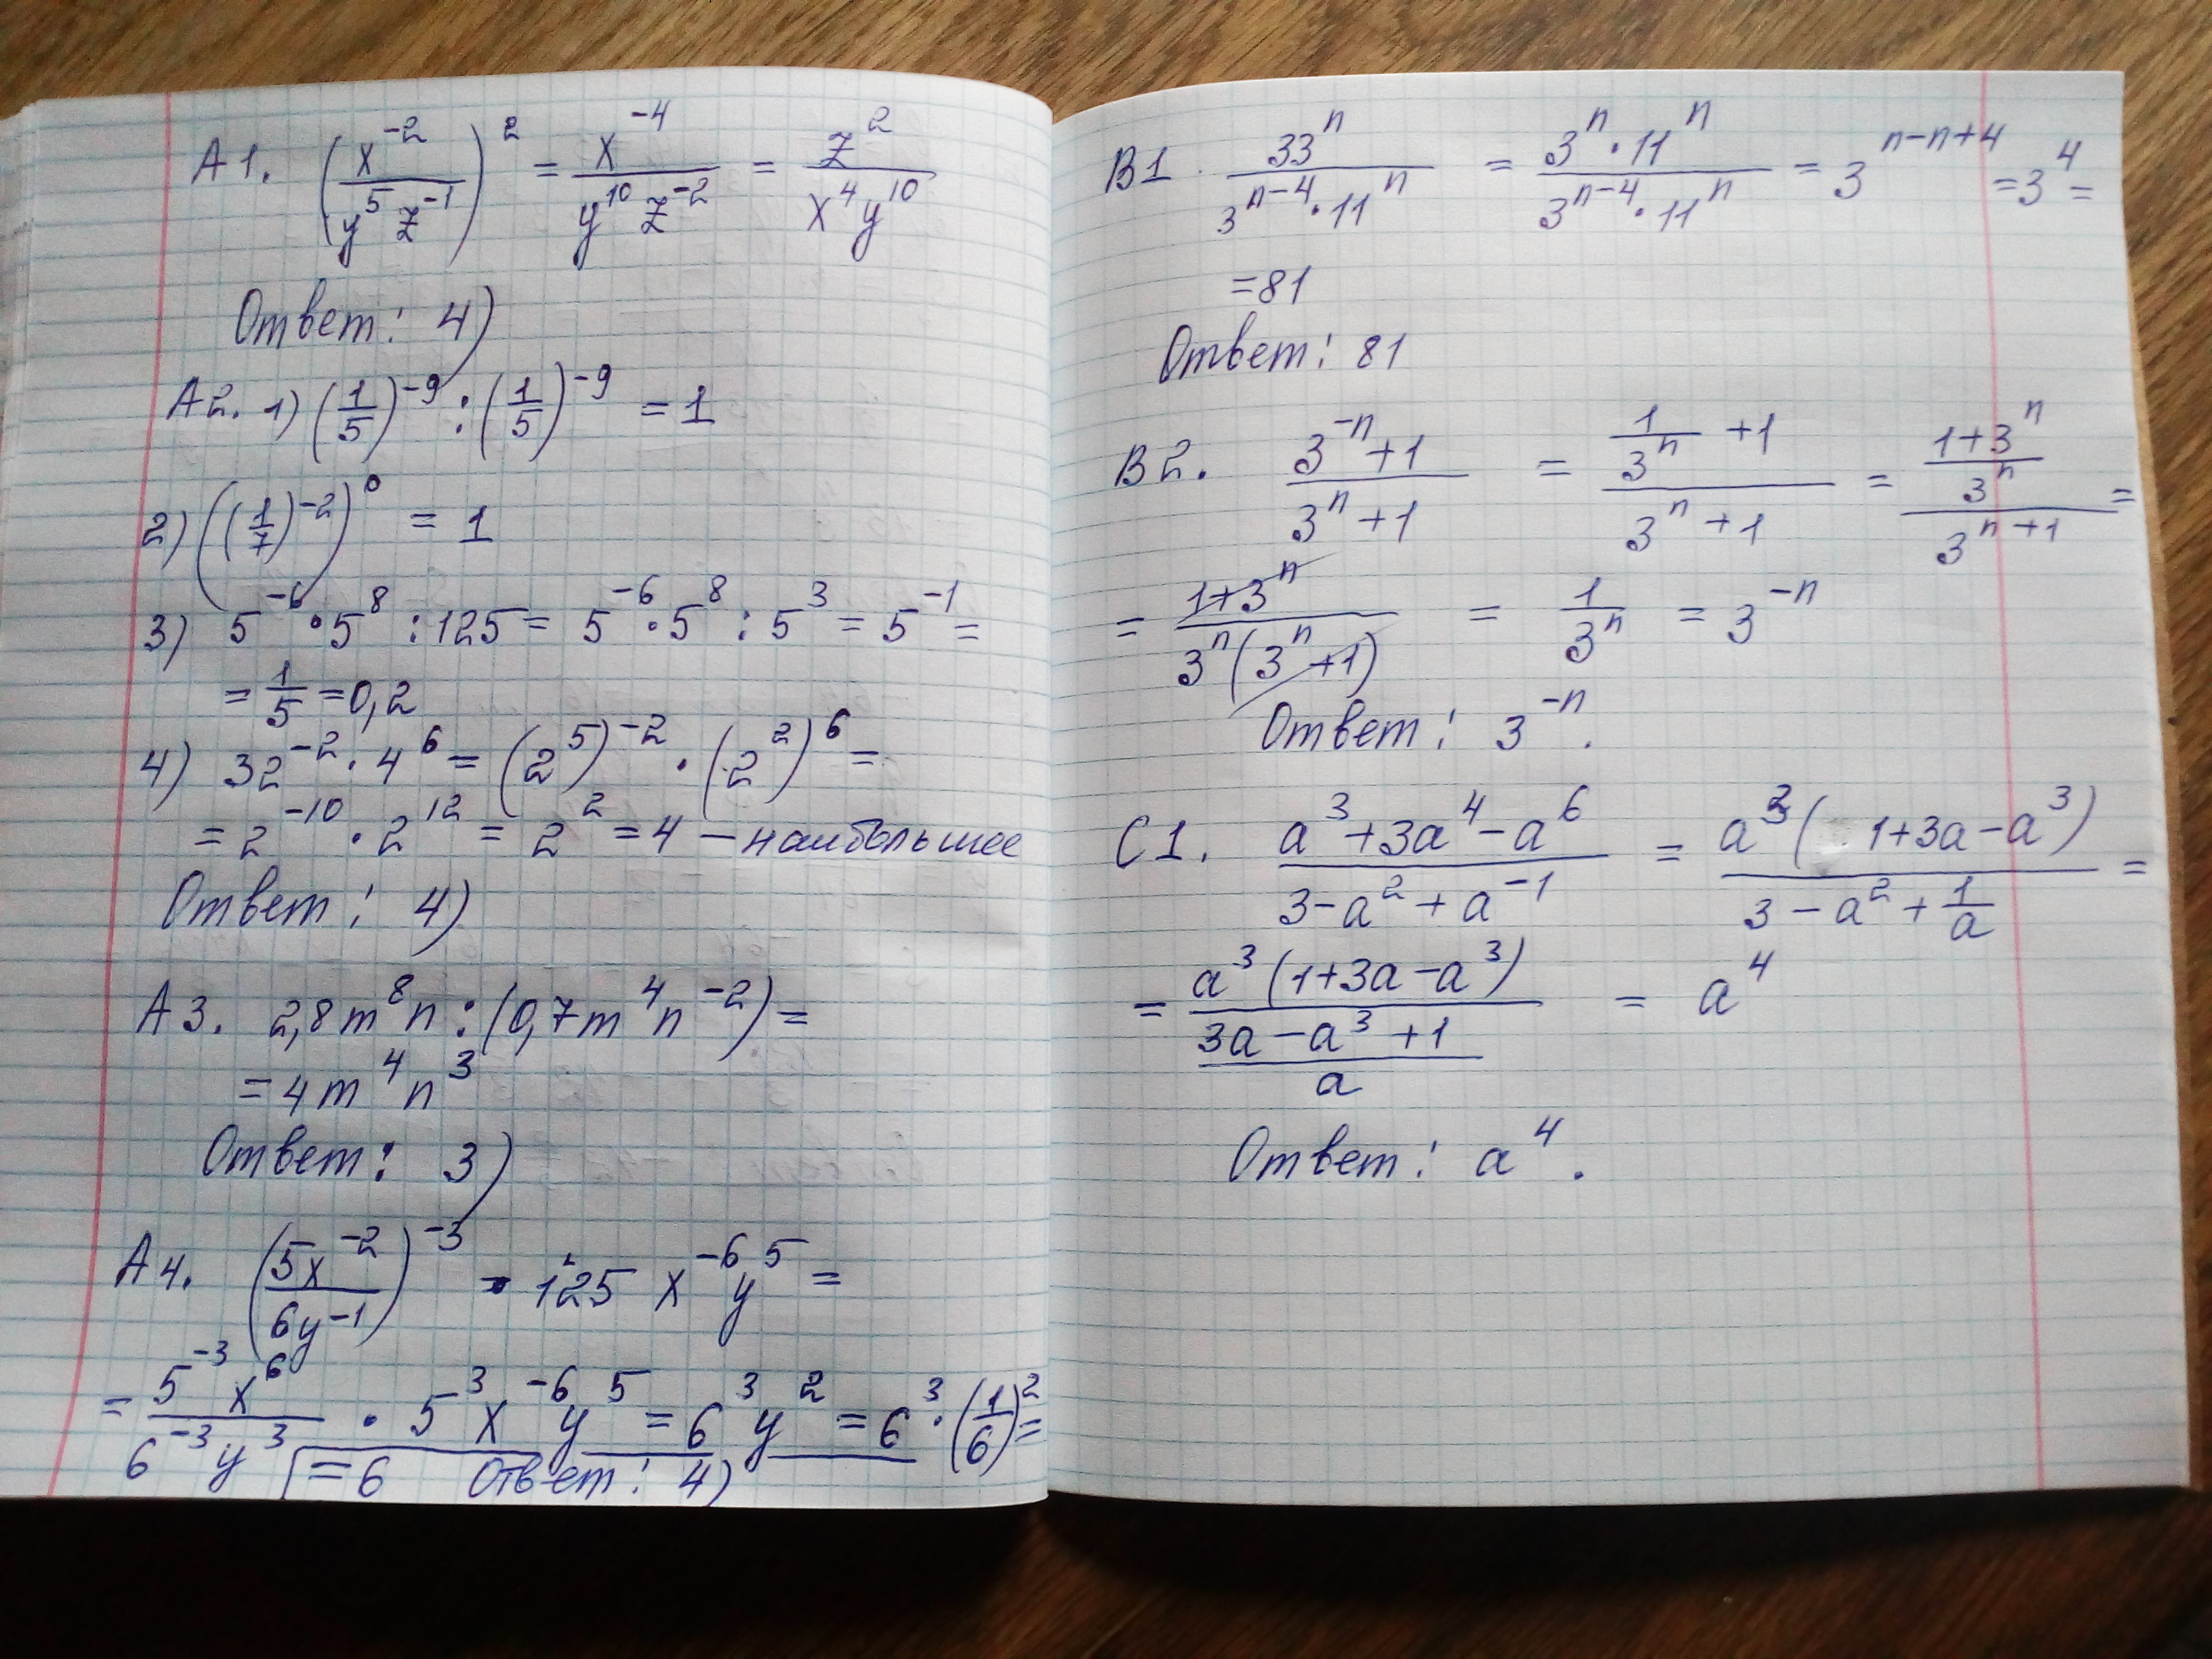 A1. (x^-2 / y^5 z^-1)^2 = x^-4 / y^10 z^-2 = z^2 / x^4 y^10
Ответ: 4)
A2. 1) (1/5)^-9 : (1/5)^-9 = 1
2) ((1/7)^-2)^0 = 1
3) 5^-6 · 5^8 : 125 = 5^-6 · 5^8 : 5^3 = 5^-1 =
= 1/5 = 0,2
4) 32^-2 · 4^6 = (2^5)^-2 · (2^2)^6 =
= 2^-10 · 2^12 = 2^2 = 4 – наибольшее
Ответ: 4)
A3. 2,8m^8n : (0,7m^4n^-2) =
= 4m^4n^3
Ответ: 3)
A4. (5x^-2 / 6y^-1)^-3 · 125 x^-6 y^5 =
= 5^-3 x^6 / 6^-3 y^3 · 5^3 x^-6 y^5 = 6^3 y^2 = 6^3 · (1/6)^2 =
= 6 Ответ: 4)
B1. 33^n / 3^n-4 · 11^n = 3^n · 11^n / 3^n-4 · 11^n = 3^n-n+4 = 3^4 =
= 81
Ответ: 81
B2. 3^-n + 1 / 3^n + 1 = 1/3^n + 1 / 3^n + 1 = 1+3^n / 3^n / 3^n+1 =
= 1+3^n / 3^n (3^n + 1) = 1 / 3^n = 3^-n
Ответ: 3^-n.
C1. a^3 + 3a^4 – a^6 / 3 – a^2 + a^-1 = a^3 (1 + 3a – a^3) / 3 – a^2 + 1/a =
= a^3 (1 + 3a – a^3) / 3a – a^3 + 1 / a = a^4
Ответ: a^4.